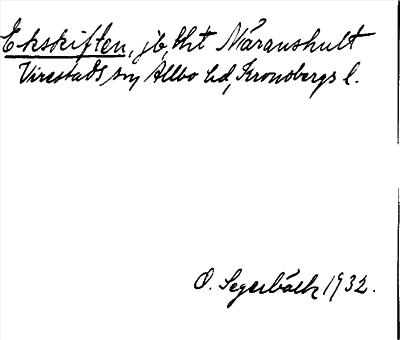 Ekskiften, jb, tht Måranshult
Virestads sn, Allbo hd, Kronobergs l.
O. Segerbäck 1932.